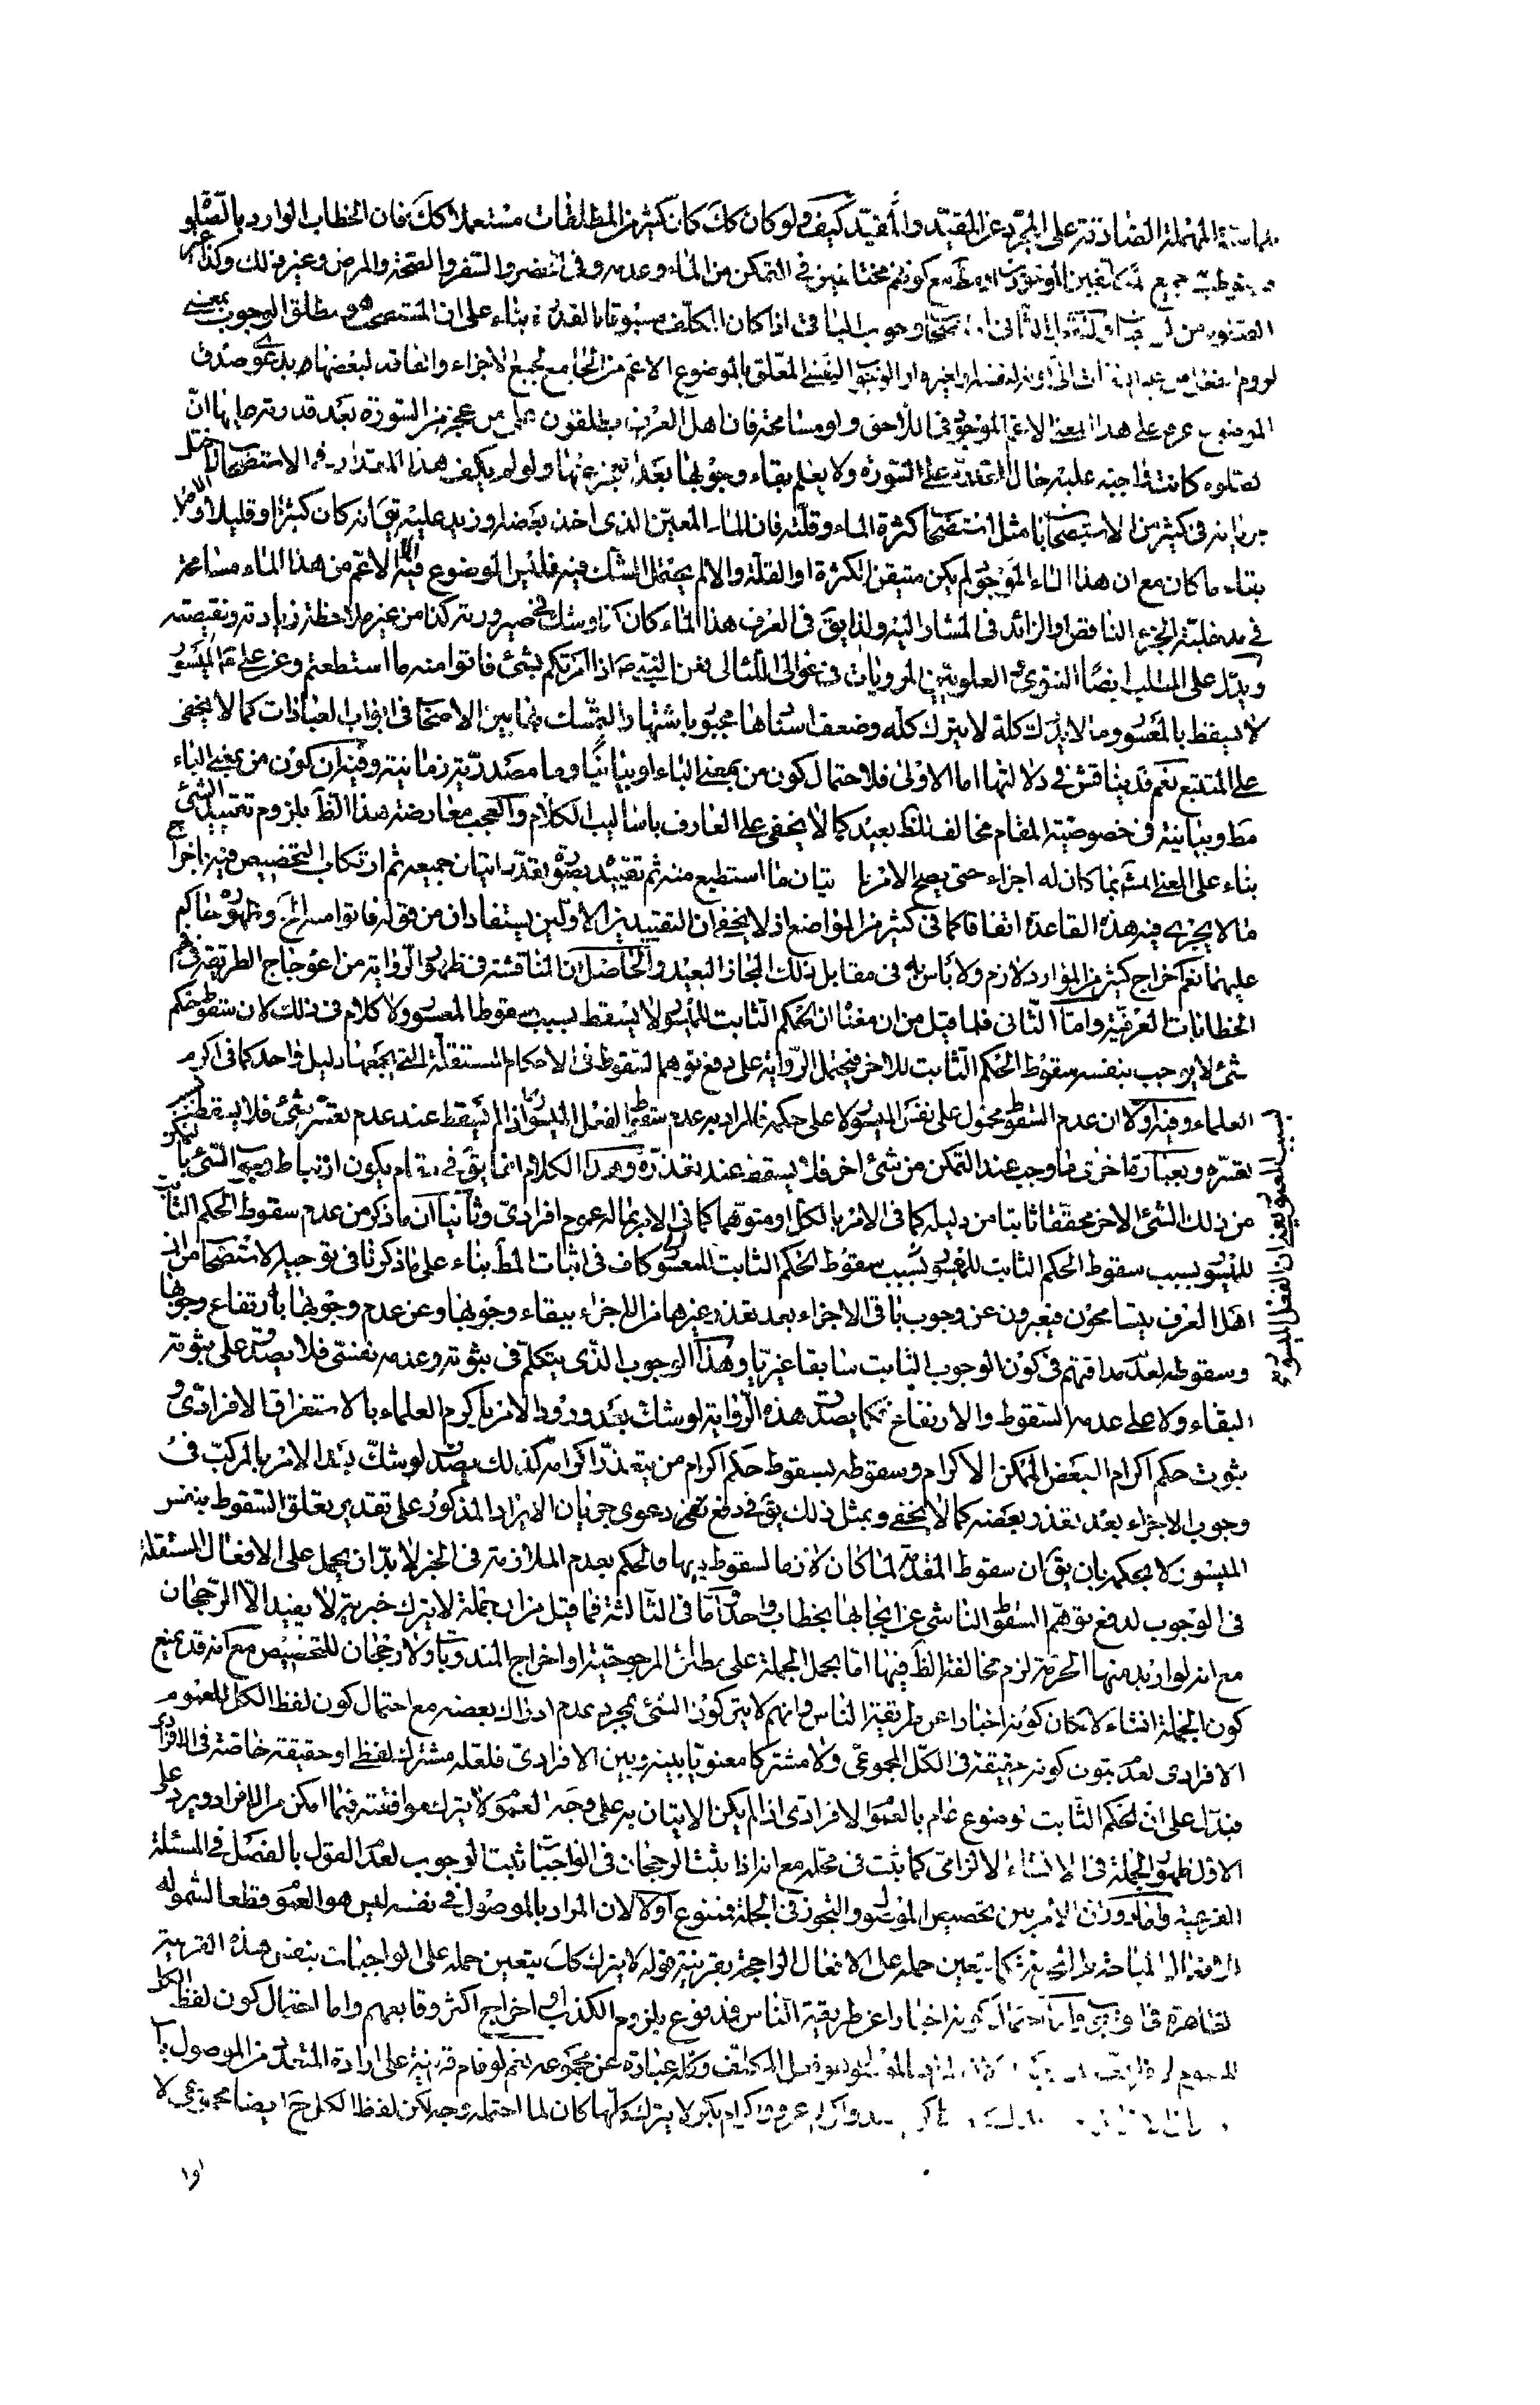 الماهية المهملة الصادقة على المجرّد عن القيد والمقيّد كيف ولو كان كك كان كثير من المطلقات مستعملا كك فان الخطاب الوارد بالصّلوة
جميع المكلفين مع كونهم مختلفين في التمكن من الماء وعدمه وفى الحضر والسّفر والصّحة والمرض وغير ذلك وكذا غير
الثانى وجوب الباقى اذا كان المكلّف مسبوقا بالقدرة بناء على ان المستصحب هو مطلق الوجوب بمعنى
لزوم الفعل من غير التفات الى كونه لنفسه او لغيره او الوجوب النفسى المعلّق بالموضوع الاعم من الجامع لجميع الاجزاء والفاقد لبعضها ويدعى صدق
الموضوع عرفا على هذا المعنى الاعم الموجود فى اللاحق ولو مسامحة فان اهل العرف يطلقون على من عجز من السّورة بعد قدرته عليها ان
الصلوة كانت واجبة عليه حال القدرة على السّورة ولا يعلم بقاء وجوبها بعد العجز عنها ولو لم يكف هذا المقدار فى الاستصحاب لاختل
جريانه فى كثير من الاستصحابات مثل استصحاب كثرة الماء وقلّته فان الماء المعيّن الذى اخذ بعضه او زيد عليه يق انه كان كثيرا او قليلا والاصل
بقاء ما كان مع ان هذا الماء الموجود لم يكن متيقن الكثرة او القلة والا لم يحتمل الشك فيه فليس الموضوع فيه الا الاعم من هذا الماء مسامحة
فى مدخلية الجزء الناقص او الزائد فى المشار اليه ولذا يق فى العرف هذا الماء كان كذا وشك فى صيرورته كذا من غير ملاحظة زيادته ونقيصته
ويدل على المطلب ايضًا النبوى والعلويّان المرويات فى غوالى اللئالى فعن النبى ص اذا امرتكم بشئ فاتوا منه ما استطعتم وعن على ع الميسور
لا يسقط بالمعسور وما لا يدرك كله لا يترك كله وضعف اسنادها مجبور باشتهار التمسك بها بين الاصحاب فى ابواب العبادات كما لا يخفى
على المتتبع نعم قد يناقش فى دلالتها اما الاولى فلاحتمال كون من بمعنى الباء او بيانيّا وما مصدرية زمانية وفيه ان كون من بمعنى الباء
مط وبيانية فى خصوص المقام مخالف للظ بعيد كما لا يخفى على العارف باساليب الكلام والعجب معارضة هذا الظ بلزوم تقييد الشئ
بناء على المعنى المشهور بما كان له اجزاء حتى يصح الامر باتيان ما استطيع منه ثم تقييده بصورة تعذر اتيان جميعه ثم ارتكاب التخصيص فيه باخراج
ما لا يجرى فيه هذه القاعدة اتفاقا كما فى كثير من المواضع اذ لا يخفى ان التقييدين الاولين يستفادان من قوله فاتوا منه الخ وظهوره حاكم
عليهما نعم اخراج كثير من الموارد لازم ولا باس به فى مقابل ذلك المجاز البعيد والحاصل ان المناقشة فى ظهور الرواية من اعوجاج الطريقة فى فهم
الخطابات العرفية وامّا الثانى فلما قيل من ان معناه ان الحكم الثابت للميسور لا يسقط بسبب سقوط المعسور ولا كلام فى ذلك لان سقوط حكم
شئ لا يوجب بنفسه سقوط الحكم الثابت للاخر فيحمل الرواية على دفع توهم السّقوط فى الاحكام المستقلة التى يجمعها دليل واحد كما فى اكرم
العلماء وفيه اولا ان عدم السّقوط محمول على نفس الميسور لا على حكمه فالمراد به عدم سقوط الفعل الميسور
بسبب سقوط المعسور يعنى ان الفعل الميسور
اذا لم يسقط عند عدم تعسّر شئ فلا يسقط بسبب
تعسّره وبعبارة اخرى ما وجب عند التمكن من شئ اخر فلا يسقط عند تعذره وهذا الكلام انما يق فى مقام يكون ارتباط وجوب الشئ بالتمكن
من ذلك الشئ الاخر محققا ثابتا من دليله كما فى الامر بالكل او متوهما كما فى الامر بما له عموم افرادى وثانيا ان ما ذكر من عدم سقوط الحكم الثابت
للميسور بسبب سقوط الحكم الثابت للمعسور كاف فى اثبات المط بناء على ما ذكرنا فى توجيه الاستصحاب من ان
اهل العرف يتسامحون فيعبرون عن وجوب باقى الاجزاء بعد تعذر غيرها من الاجزاء ببقاء وجوبها وعن عدم وجوبها بارتفاع وجوبها
وسقوطه لعدم مداقتهم فى كون الوجوب الثابت سابقا غيريا وهذا الوجوب الذى يتكلّم فى ثبوته وعدمه نفسى فلا يصدق على ثبوته
البقاء ولا على عدمه السّقوط والارتفاع فكما يصدق هذه الرواية لو شك بعد ورود الامر باكرام العلماء بالاستغراق الافرادى فى
ثبوت حكم اكرام البعض الممكن الاكرام وسقوطه بسقوط حكم اكرام من يتعذر اكرامه كذلك يصدق لو شك بعد الامر بالمركب فى
وجوب الاجزاء بعد تعذر بعضه كما لا يخفى وبمثل ذلك يق فى دفع دعوى جريان الايراد المذكور على تقدير تعلق السّقوط بنفس
الميسور لا بحكمه بان يق ان سقوط المقدمة لما كان لازما لسقوط ذيها فالحكم بعدم الملازمة فى الخبر لا بدّ ان يحمل على الافعال المستقلة
فى الوجوب لدفع توهم السّقوط الناشى عن ايجابها بخطاب واحد وامّا فى الثالثة فما قيل من ان جملة لا يترك خبرية لا يفيد الّا الرجحان
مع انه لو اريد منها الحرمة لزم مخالفة الظ فيها اما بحمل الجملة على مطلق المرجوحية او اخراج المندوبات ولا رجحان للتخصيص مع انه قد يمنع
كون الجملة انشاء لامكان كونه اخبارا عن طريقة الناس وانهم لا يتركون الشئ بمجرد عدم ادراك بعضه مع احتمال كون لفظ الكل للعموم
الافرادى لعدم ثبوت كونه حقيقة فى الكلّ المجموعى ولا مشتركا معنويّا بينه وبين الافرادى فلعله مشترك لفظى او حقيقة خاصة فى الافرادى
فيدل على ان الحكم الثابت لموضوع عام بالعموم الافرادى اذا لم يكن الاتيان به على وجه العموم لا يترك موافقته فيما امكن من الافراد ويرد على
الاول ظهور الجملة فى الانشاء الالزامى كما ثبت فى محله مع انه اذا ثبت الرجحان فى الواجبات ثبت الوجوب لعدم القول بالفصل فى المسئلة
الفرعية واما دوران الامر بين تخصيص الموصول والتجوز فى الجملة فممنوع اولا لان المراد بالموصول فى نفسه ليس هو العموم قطعا لشموله
للافعال المباحة بل المحرّمة فكما يتعين حمله على الافعال الراجحة بقرينة قوله لا يترك كك يتعين حمله على الواجبات بنفس هذه القرينة
الظاهرة فى الوجوب وامّا احتمال كونه اخبارا عن طريقة الناس فمدفوع بلزوم الكذب او اخراج اكثر وقايعهم واما احتمال كون لفظ الكل
للعموم الافرادى فعل المكلّف وكله عبارة عن مجموعه نعم لو قام قرينة على ارادة المتعدد من الموصول بان
اكرام بكر لا يترك كلّها كان لما احتمله وجه لكن لفظ الكل ح ايضا مجموعى لا
اوا